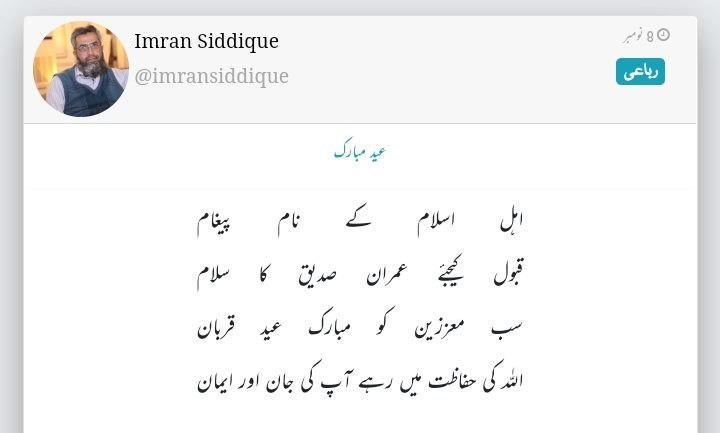 Imran Siddique
@imransiddique
8 نومبر
رباعی
عید مبارک
اہل اسلام کے نام پیغام
قبول کیجئے عمران صدیق کا سلام
سب معززین کو مبارک عید قربان
اللہ کی حفاظت میں رہے آپ کی جان اور ایمان